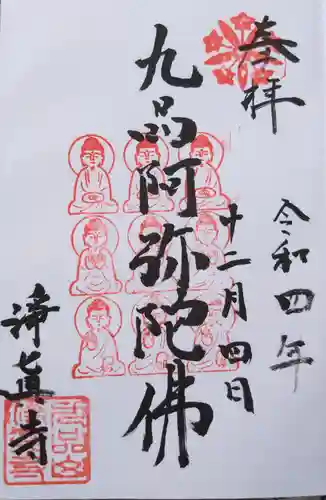 奉拝
令和四年
十二月四日
九品阿弥陀佛
浄真寺